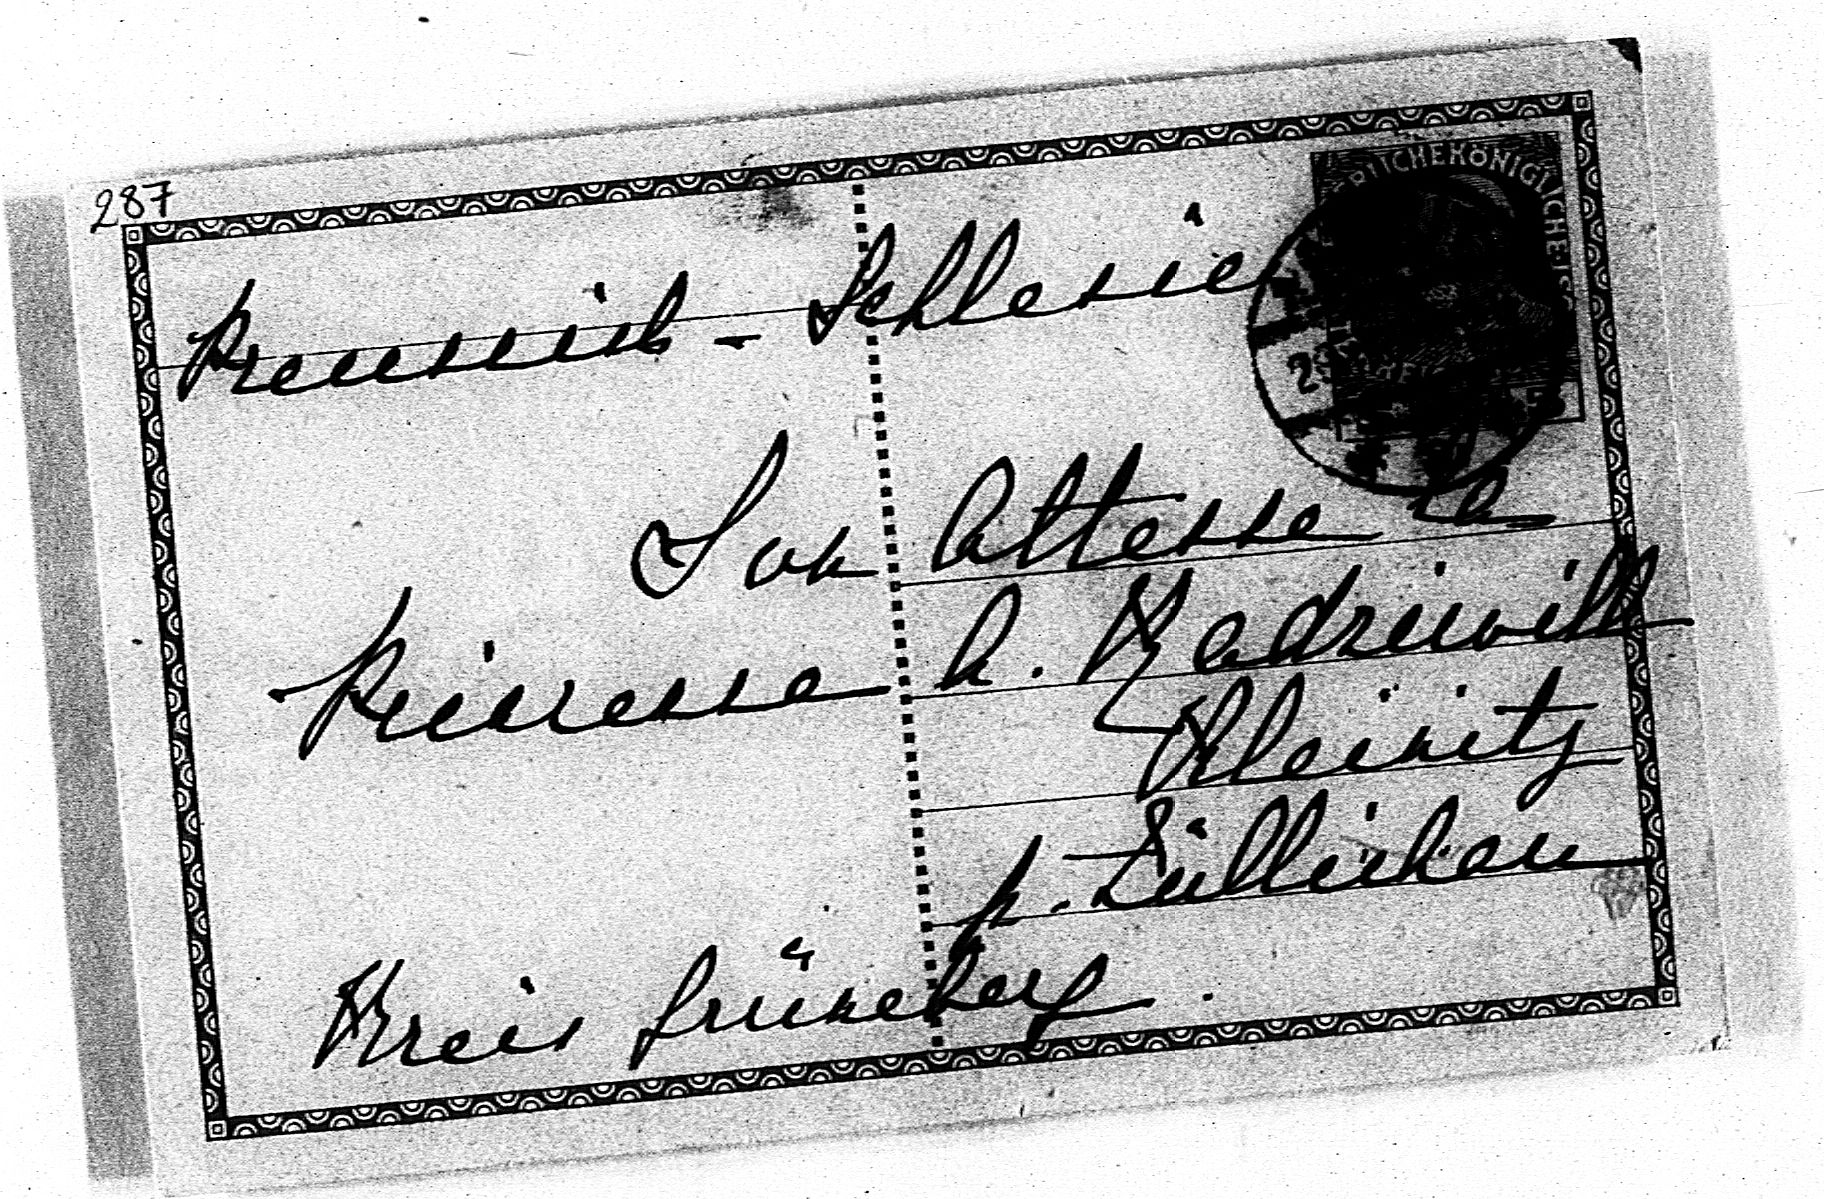 287
Preussisch-Schlesie
Son Altesse la
Princesse R. Radziwill
Kleinitz
p. Züllichau
Kreis Grüneberg.